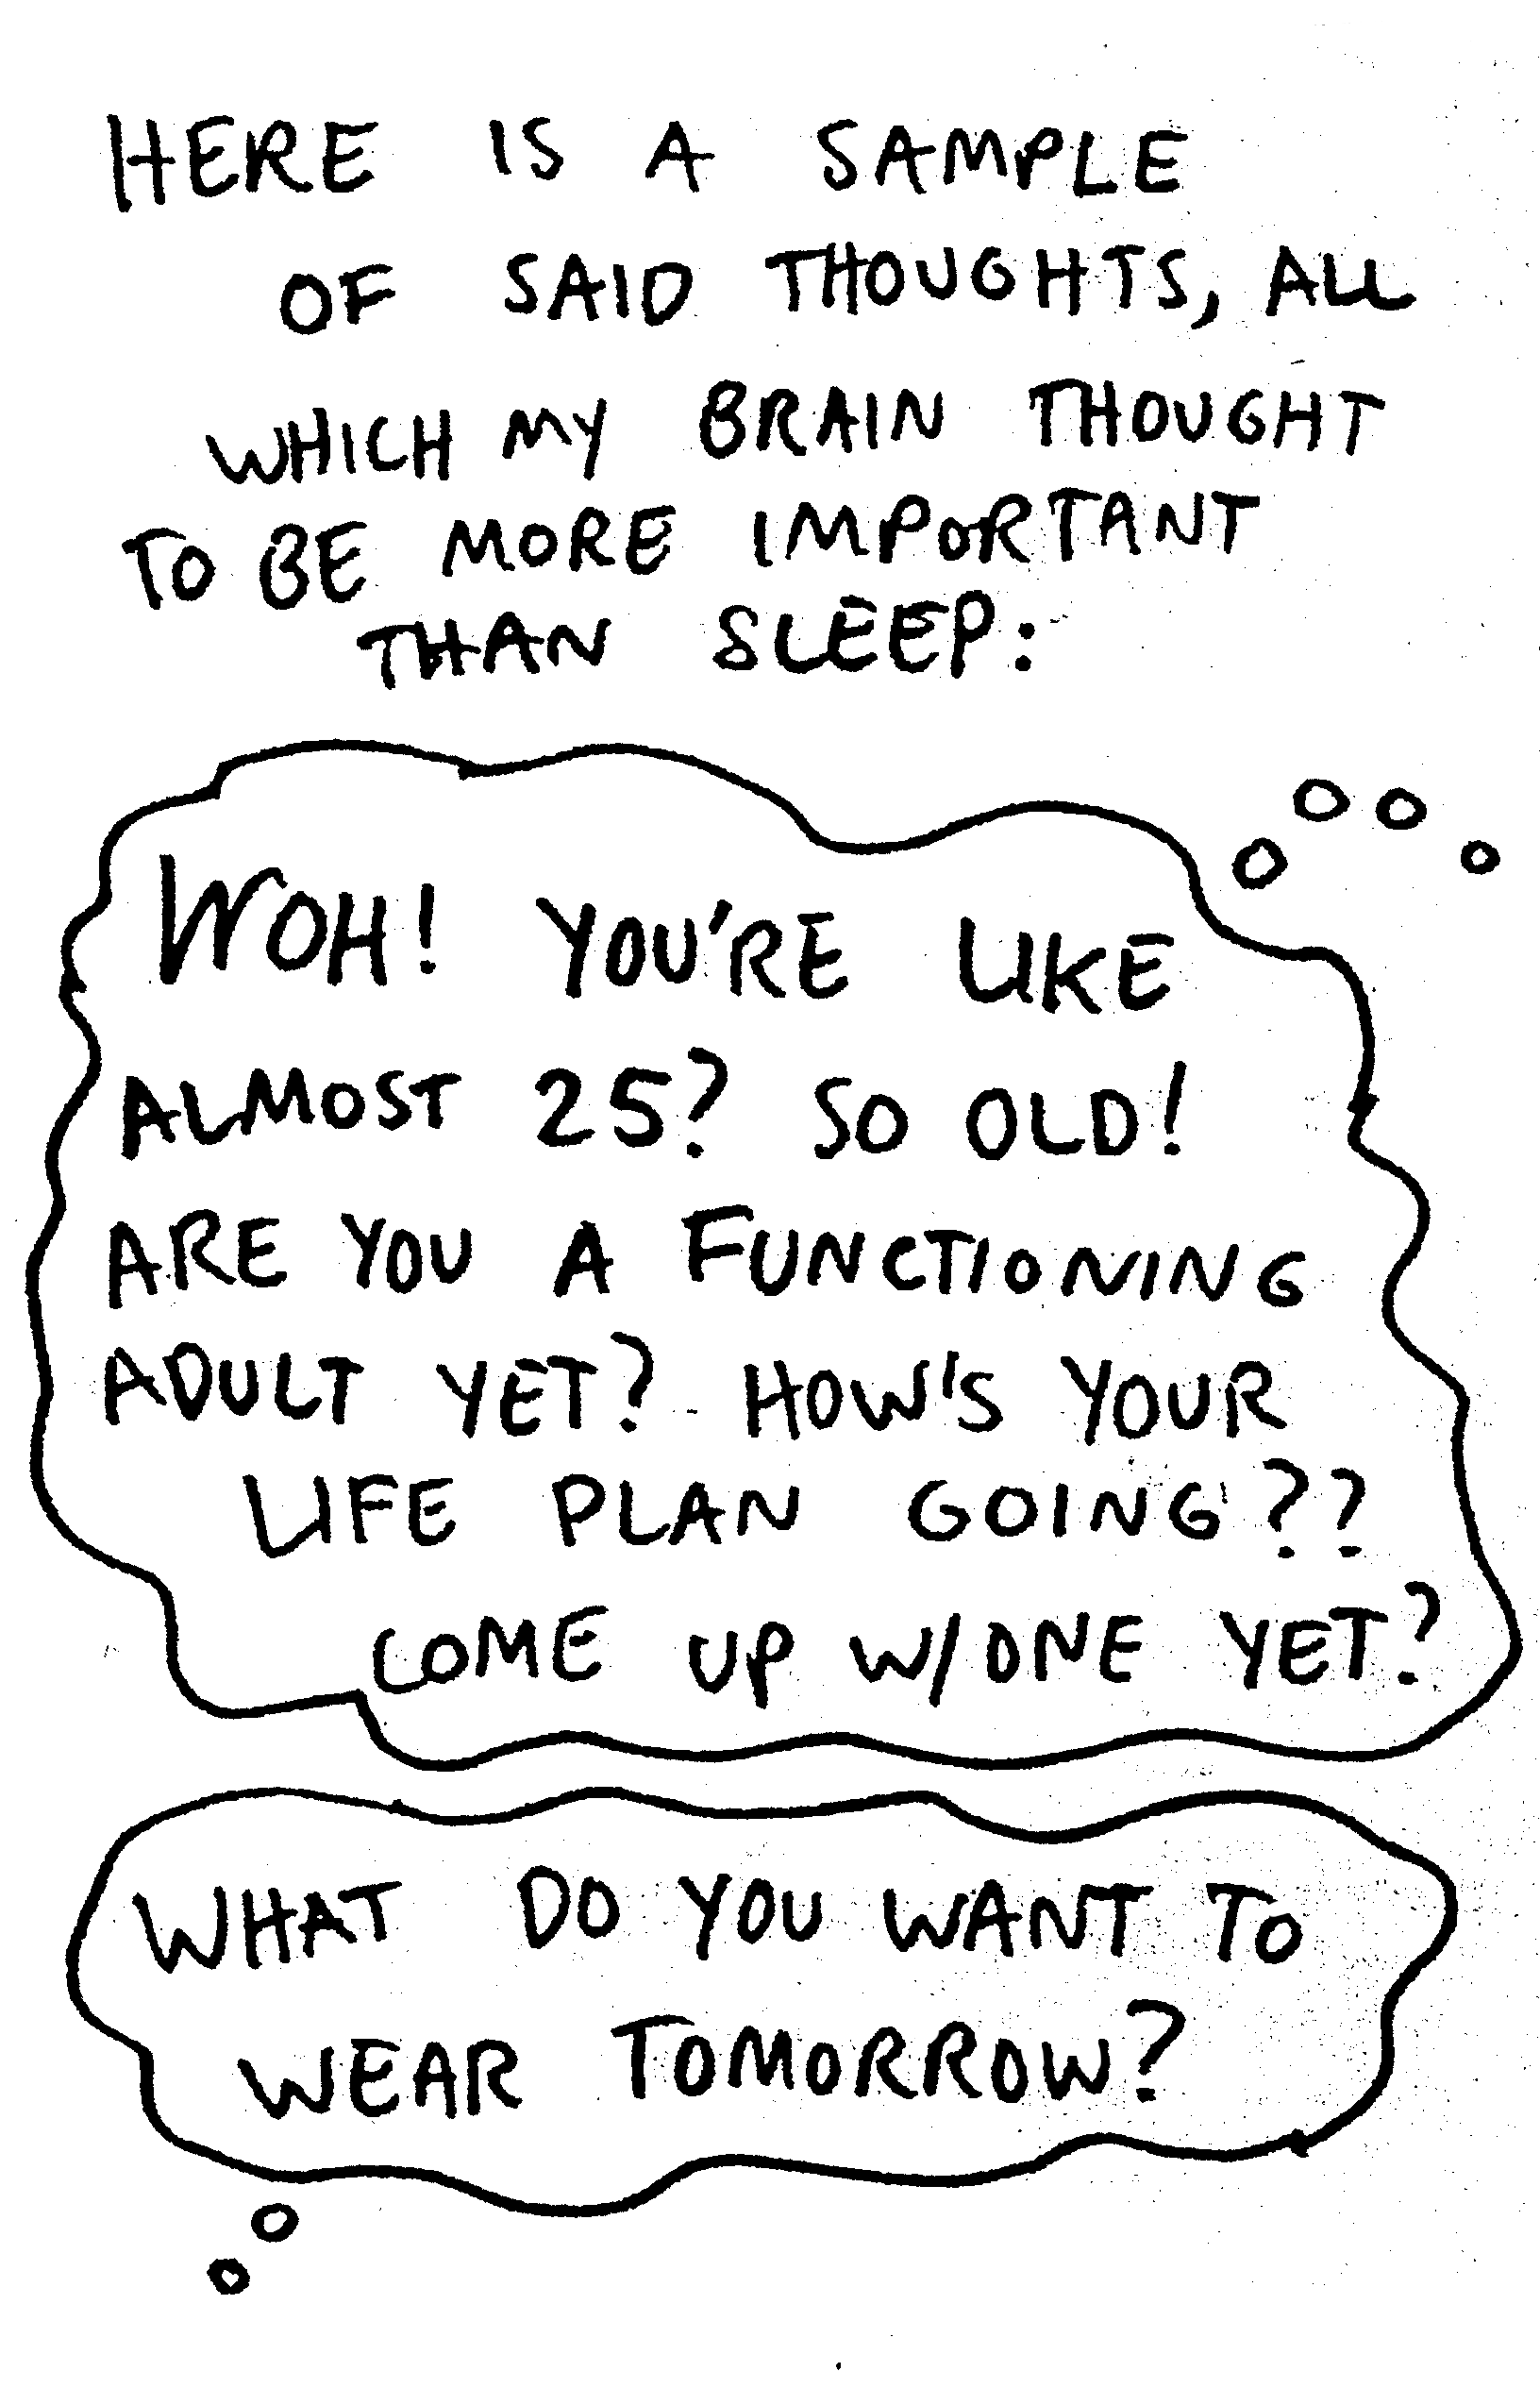 HERE IS A SAMPLE
OF SAID THOUGHTS, ALL
WHICH MY BRAIN THOUGHT
TO BE MORE IMPORTANT
THAN SLEEP:
WOH! YOU'RE LIKE
ALMOST 25? SO OLD!
ARE YOU A FUNCTIONING
ADULT YET? HOW'S YOUR
LIFE PLAN GOING??
COME UP W/ONE YET?
WHAT DO YOU WANT TO
WEAR TOMORROW?